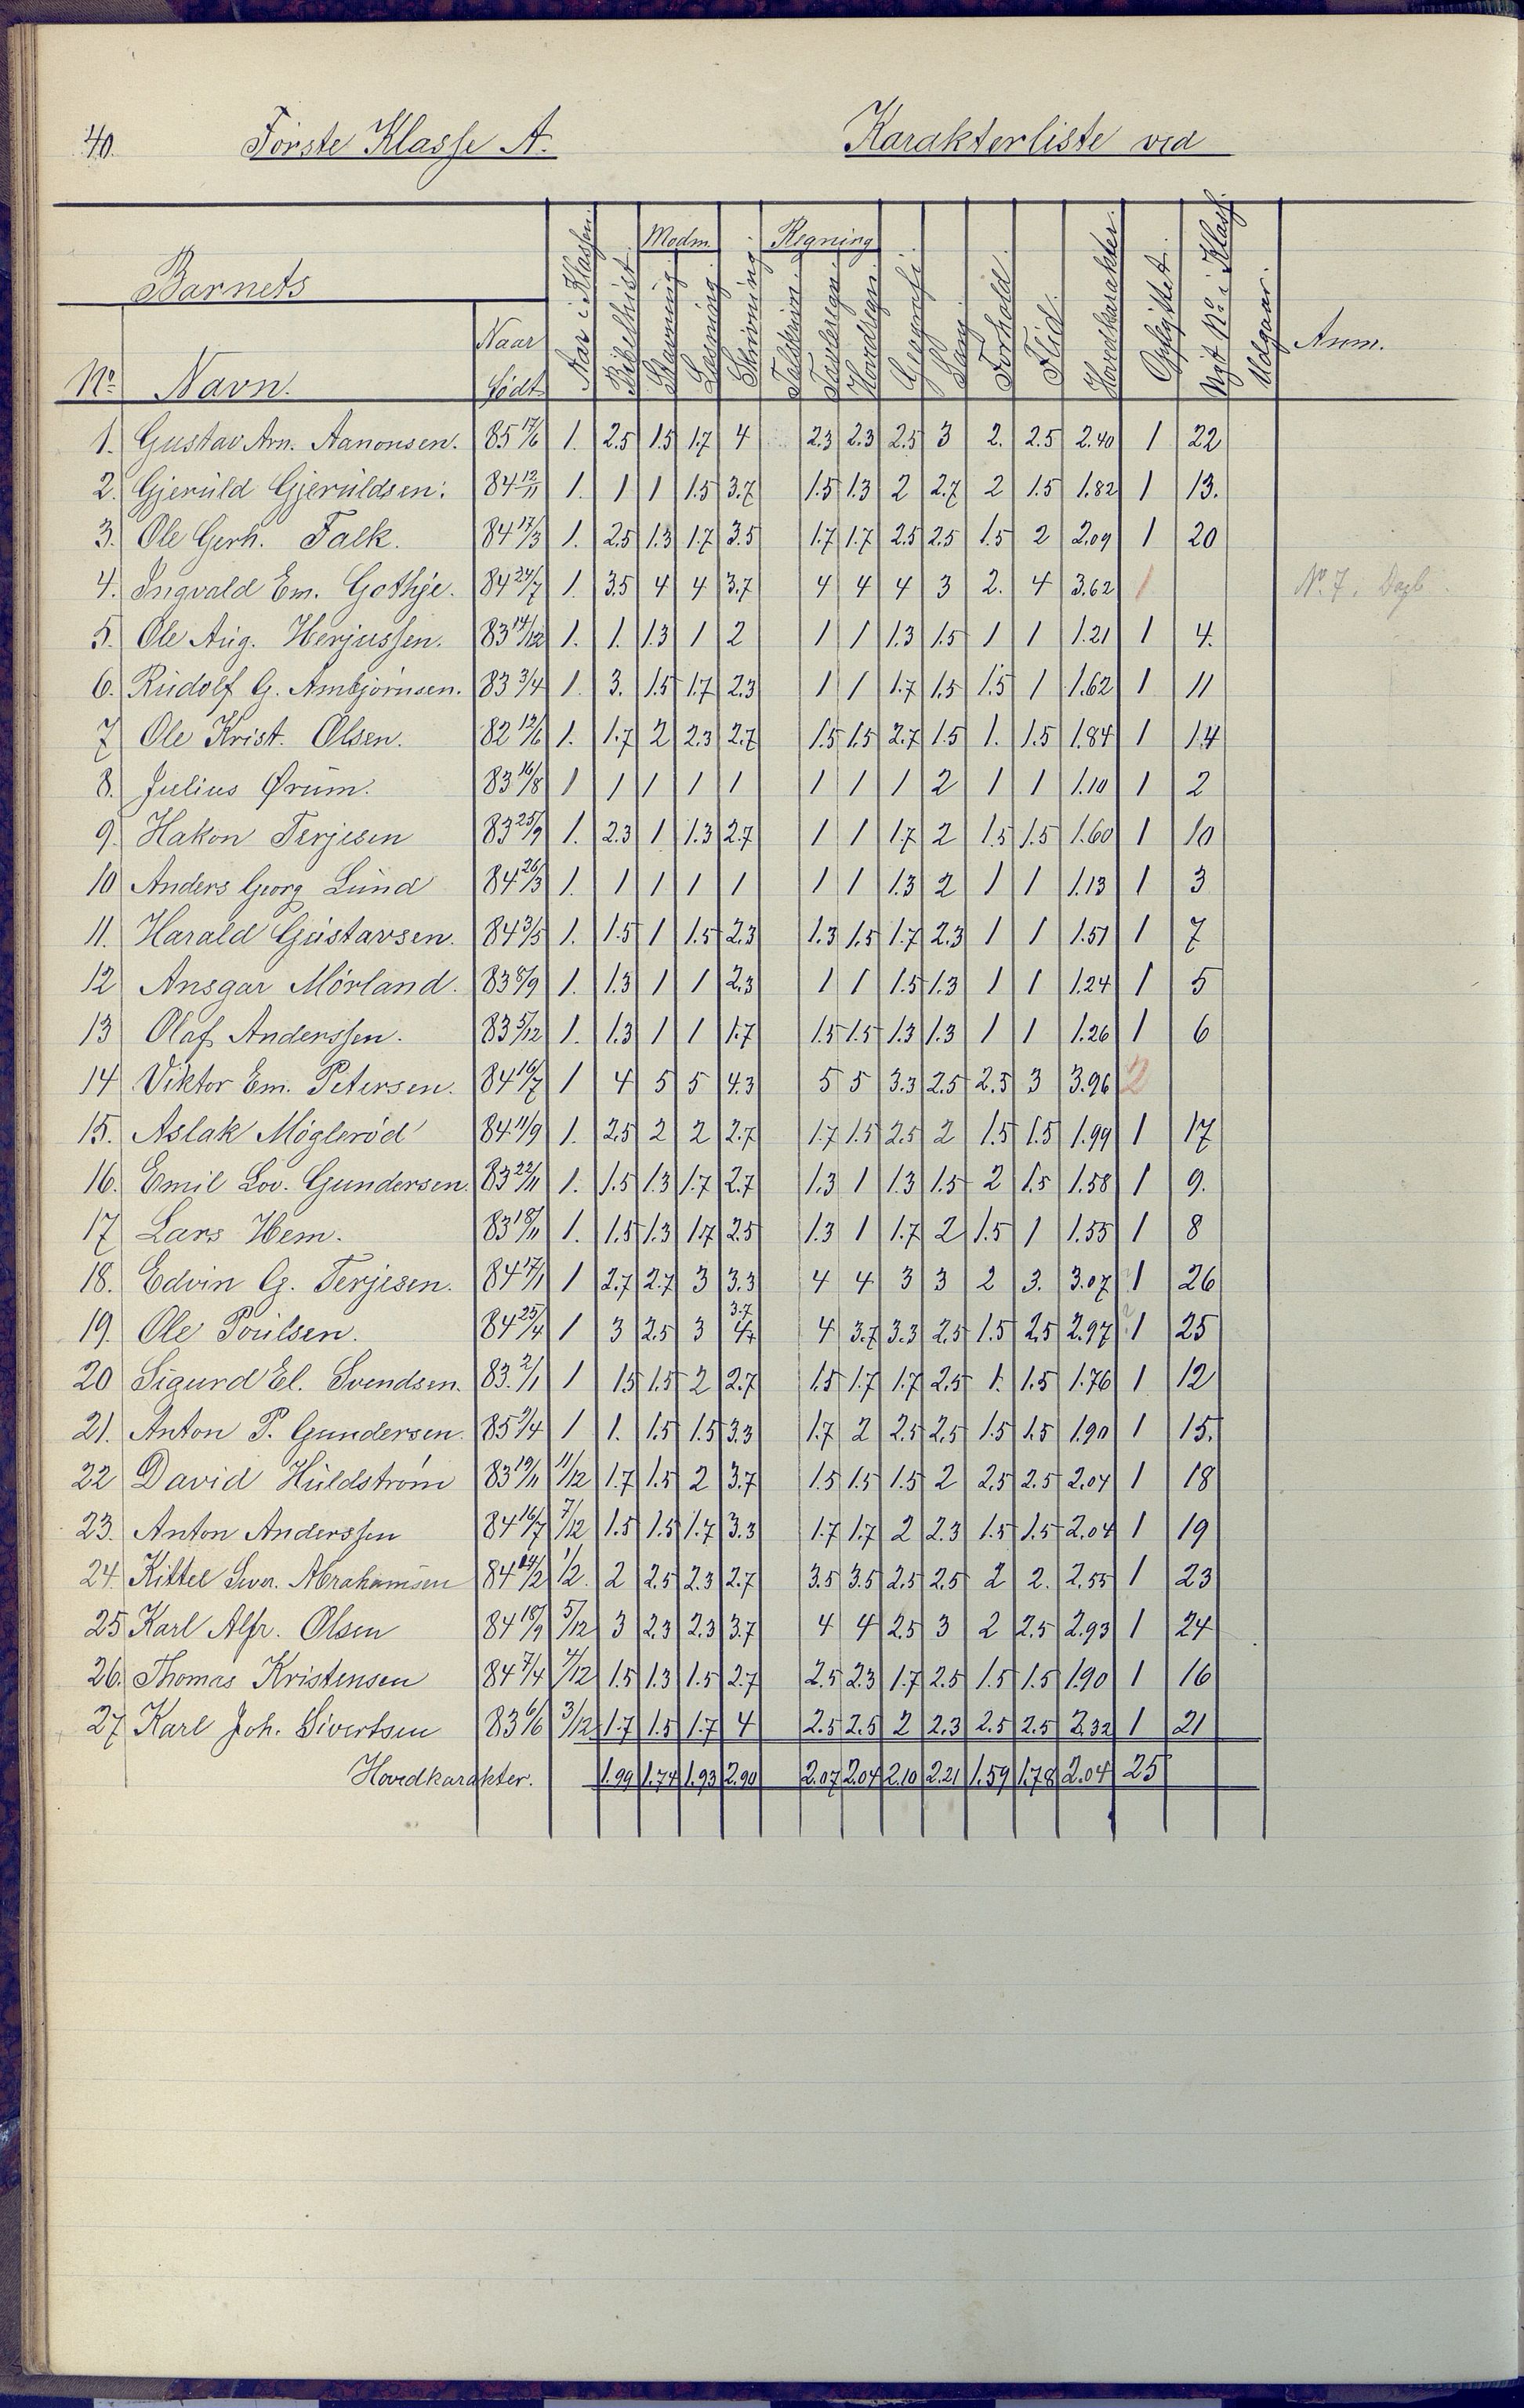 40. Første Klasse A. Karakterliste ved
Barnets Modm. Regning
No. Navn. Naar født Aar i Klassen. Bibelhist. Stavning. Læsning. Skrivning. Talskrivn. Tavleregn. Hovedregn. Geografi. Sang. Forhold. Flid. Hovedkarakter. Opflyttet. Nyt No. i Klass. Udgaar. Anm.
1. Gustav Arn. Aanonsen. 85 17/6 1. 2.5 1.5 1.7 4 2.3 2.3 2.5 3 2. 2.5 2.40 1 22
2. Gjeruld Gjeruldsen. 84 12/11 1. 1 1 1.5 3.7 1.5 1.3 2 2.7 2 1.5 1.82 1 13.
3. Ole Gerh. Falk. 84 17/3 1. 2.5 1.3 1.7 3.5 1.7 1.7 2.5 2.5 1.5 2 2.09 1 20
4. Ingvald Em. Gothje. 84 24/7 1. 3.5 4 4 3.7 4 4 4 3 2. 4 3.62 1 No. 7. Dagb.
5. Ole Aug. Herjussen. 83 14/12 1. 1. 1.3 1 2 1 1 1.3 1.5 1 1 1.21 1 4.
6. Rudolf G. Ambjørnsen. 83 3/4 1. 3. 1.5 1.7 2.3 1 1 1.7 1.5 1.5 1 1.62 1 11
7 Ole Krist. Olsen. 82 12/6 1. 1.7 2 2.3 2.7 1.5 1.5 2.7 1.5 1. 1.5 1.84 1 14
8. Julius Ørum. 83 16/8 1 1 1 1 1 1 1 1 2 1 1 1.10 1 2
9. Hakon Terjesen 83 25/9 1. 2.3 1 1.3 2.7 1 1 1.7 2 1.5 1.5 1.60 1 10
10 Anders Georg Lund 84 26/3 1. 1 1 1 1 1 1 1.3 2 1 1 1.13 1 3
11. Harald Gustavsen. 84 3/5 1. 1.5 1 1.5 2.3 1.3 1.5 1.7 2.3 1 1 1.51 1 7
12 Ansgar Mörland. 83 8/9 1. 1.3 1 1 2.3 1 1 1.5 1.3 1 1 1.24 1 5
13 Olaf Anderssen. 83 5/12 1. 1.3 1 1 1.7 1.5 1.5 1.3 1.3 1 1 1.26 1 6
14 Viktor Em. Petersen. 84 16/7 1 4 5 5 4.3 5 5 3.3 2.5 2.5 3 3.96 2
15. Aslak Möglerød 84 11/9 1. 2.5 2 2 2.7 1.7 1.5 2.5 2 1.5 1.5 1.99 1 17
16. Emil Lov. Gundersen. 83 22/11 1. 1.5 1.3 1.7 2.7 1.3 1 1.3 1.5 2 1.5 1.58 1 9.
17 Lars Hem. 83 18/11 1. 1.5 1.3 1.7 2.5 1.3 1 1.7 2 1.5 1 1.55 1 8
18. Edvin G. Terjesen. 84 17/1 1 2.7 2.7 3 3.3 4 4 3 3 2 3. 3.07 ? 1 26
19. Ole Poulsen. 84 25/4 1 3 2.5 3 3.7 4 4 3.7 3.3 2.5 1.5 2.5 2.97 ? 1 25
20 Sigurd El. Svendsen. 83. 2/1 1 1.5 1.5 2 2.7 1.5 1.7 1.7 2.5 1. 1.5 1.76 1 12
21. Anton P. Gundersen. 85 2/4 1 1. 1.5 1.5 3.3 1.7 2 2.5 2.5 1.5 1.5 1.90 1 15.
22 David Huldström 83 19/11 11/12 1.7 1.5 2 3.7 1.5 1.5 1.5 2 2.5 2.5 2.04 1 18
23. Anton Anderssen 84 16/7 7/12 1.5 1.5 1.7 3.3 1.7 1.7 2 2.3 1.5 1.5 2.04 1 19
24. Kittel Abrahamsen 84 1/2. 2 2.5 2.3 2.7 3.5 3.5 2.5 2.5 2 2. 2.55 1 23
25 Karl Alfr. Olsen 84 18/9 5/12 3 2.3 2.3 3.7 4 4 2.5 3 2 2.5 2.93 1 24
26. Thomas Kristensen 84 7/4 4/12 1.5 1.3 1.5 2.7 2.5 2.3 1.7 2.5 1.5 1.5 1.90 1 16
27 Karl Joh. Sivertsen 83 6/6 3/12 1.7 1.5 1.7 4 2.5 2.5 2 2.3 2.5 2.5 2.32 1 21
Hovedkarakter. 1.99 1.74 1.93 2.90 2.07 2.04 2.10 2.21 1.59 1.78 2.04 25